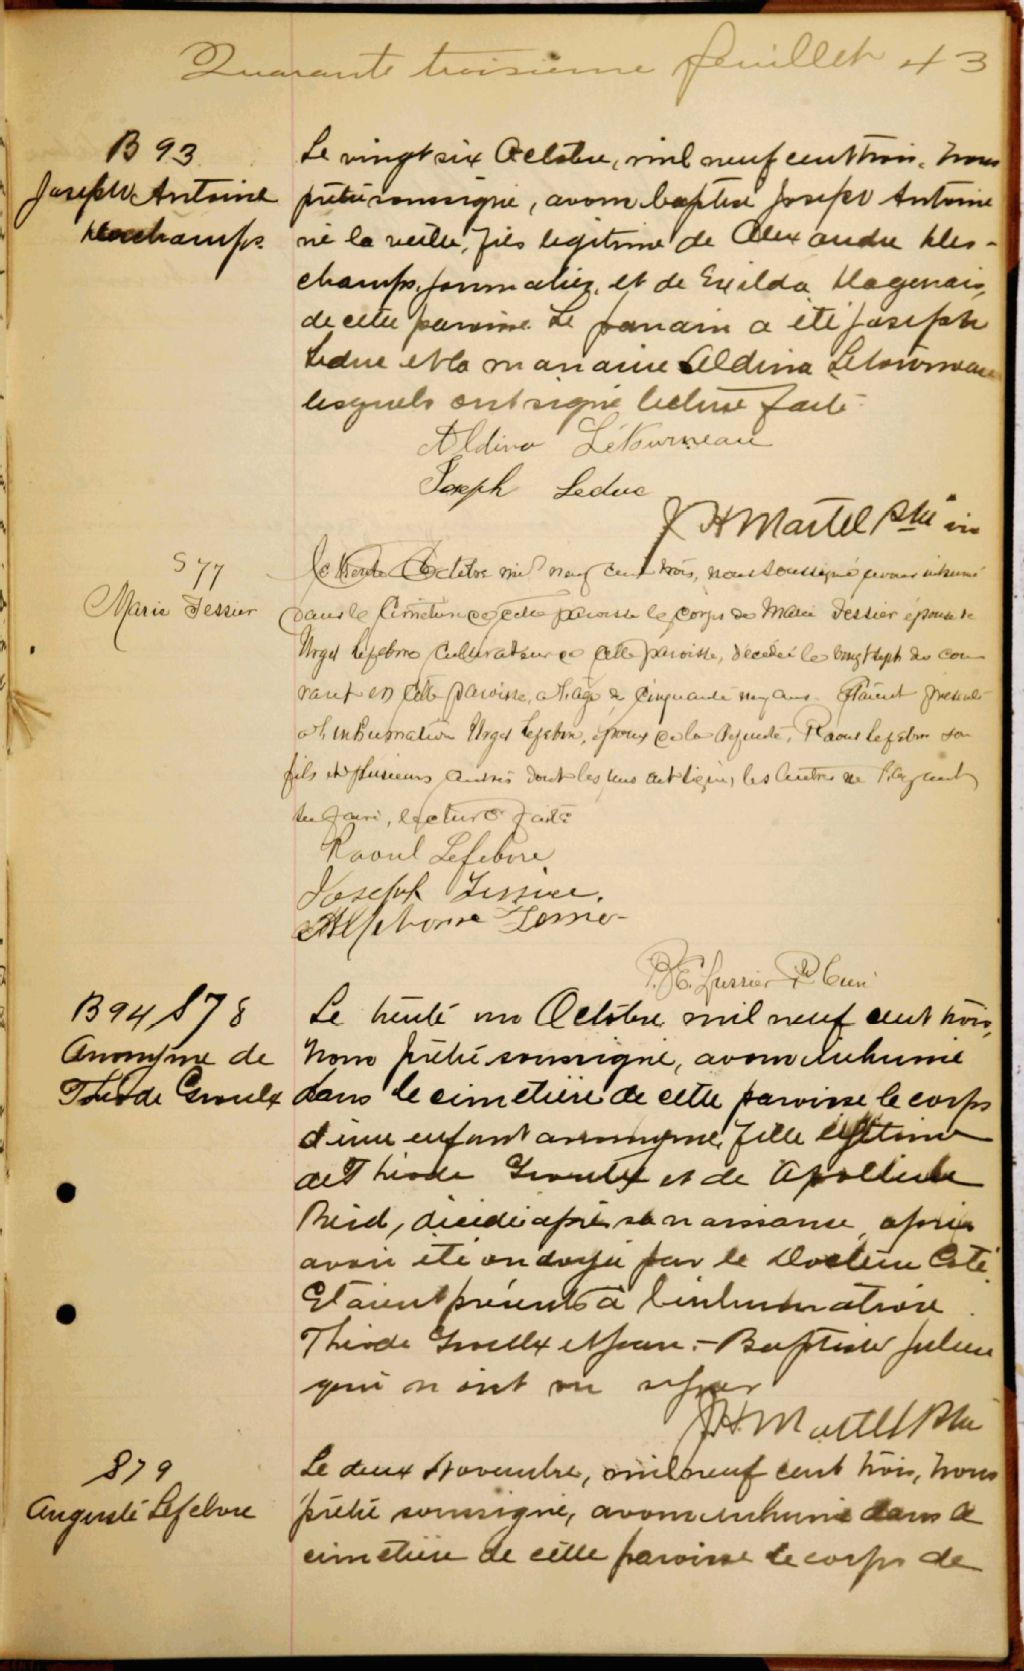 Quarante troisième feuillet 43
B 93
Joseph Antoine
Deschamps
Le vingt six Octobre, mil neuf cent trois, nous
prêtre soussigné, avons baptisé Joseph Antoine
né la veille, fils légitime de Alexandre Des-
champs, journalier, et de Exilda Dagenais,
de cette paroisse. Le parrain a été Joseph
Leduc et la marraine Aldina Létourneau
lesquels ont signé lecture faite.
Aldina Létourneau
Joseph Leduc
J H Martel Ptre vic
S 77
Marie Tessier
Le trente Octobre mil neuf cent trois, nous soussigné avons inhumé
dans le cimetière de cette paroisse le corps de Marie Tessier épouse de
Urgel Lefebvre cultivateur de cette paroisse, décédée le vingt sept du cou
rant en cette paroisse, à l'âge de cinquante ans. Etaient présents
à l'inhumation Urgel Lefebvre, époux de la défunte, Raoul Lefebvre son
fils et plusieurs autres dont les uns ont signé, les autres ne l'ayant
su faire, lecture faite
Raoul Lefebvre
Joseph Tessier.
Alphonse Tessier
Lussier Ptre Curé
B 94 S 78
Anonyme de
Théode Groulx
Le trente un Octobre mil neuf cent trois,
Nous prêtre soussigné, avons inhumé
dans le cimetière de cette paroisse le corps
d'une enfant anonyme, fille légitime
de Théode Groulx et de Apolline
Reid, décédée après sa naissance, après
avoir été ondoyée par le Docteur Coté.
Etaient présents à l'inhumation
Théode Groulx et Jean-Baptiste Julien
qui n'ont su signer
J H Martel Ptre
S 79
Auguste Lefebvre
Le deux Novembre, mil neuf cent trois, nous
prêtre soussigné, avons inhumé dans le
cimetière de cette paroisse le corps de